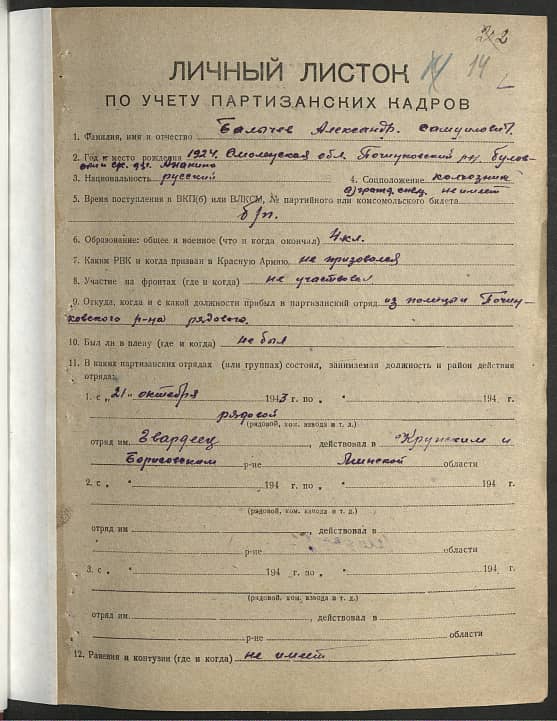 2
14 14
ЛИЧНЫЙ ЛИСТОК
ПО УЧЕТУ ПАРТИЗАНСКИХ КАДРОВ
1. Фамилия, имя и отчество Балычев Александр. Самуилович.
2. Год и место рождения 1924. Смоленская обл. Починковский р-н,
дер. Ананино
3. Национальность русский 4. Соцположение колхозник
б) гражд. спец. не имеет
5. Время поступления в ВКП(б) или ВЛКСМ, № партийного или комсомольского билета
б/п.
6. Образование: общее и военное (что и когда окончил) 4 кл.
7. Каким РВК и когда призван в Красную Армию не призовался
8. Участие на фронтах (где и когда) не участвовал
9. Откуда, когда и с какой должности прибыл в партизанский отряд из полиции Почин-
ковского р-на рядового.
10. Был ли в плену (где и когда) не был
11. В каких партизанских отрядах (или группах) состоял, занимаемая должность и район действия
отряда:
1. с „21" октября 1943 г. по „ " 194 г.
рядовой
(рядовой, ком. взвода и т. д.)
отряд им. Гвардеец, действовал в Крупским и
Борисовском р-не Минской области
2. с „ " 194 г. по „ " 194 г.
(рядовой, ком. взвода и т. д.)
отряд им , действовал в
р-не области
3. с „ " 194 г. по „ " 194 г.
(рядовой, ком. взвода и т. д.)
отряд им. , действовал в
р-не области
12. Ранения и контузии (где и когда) не имеет